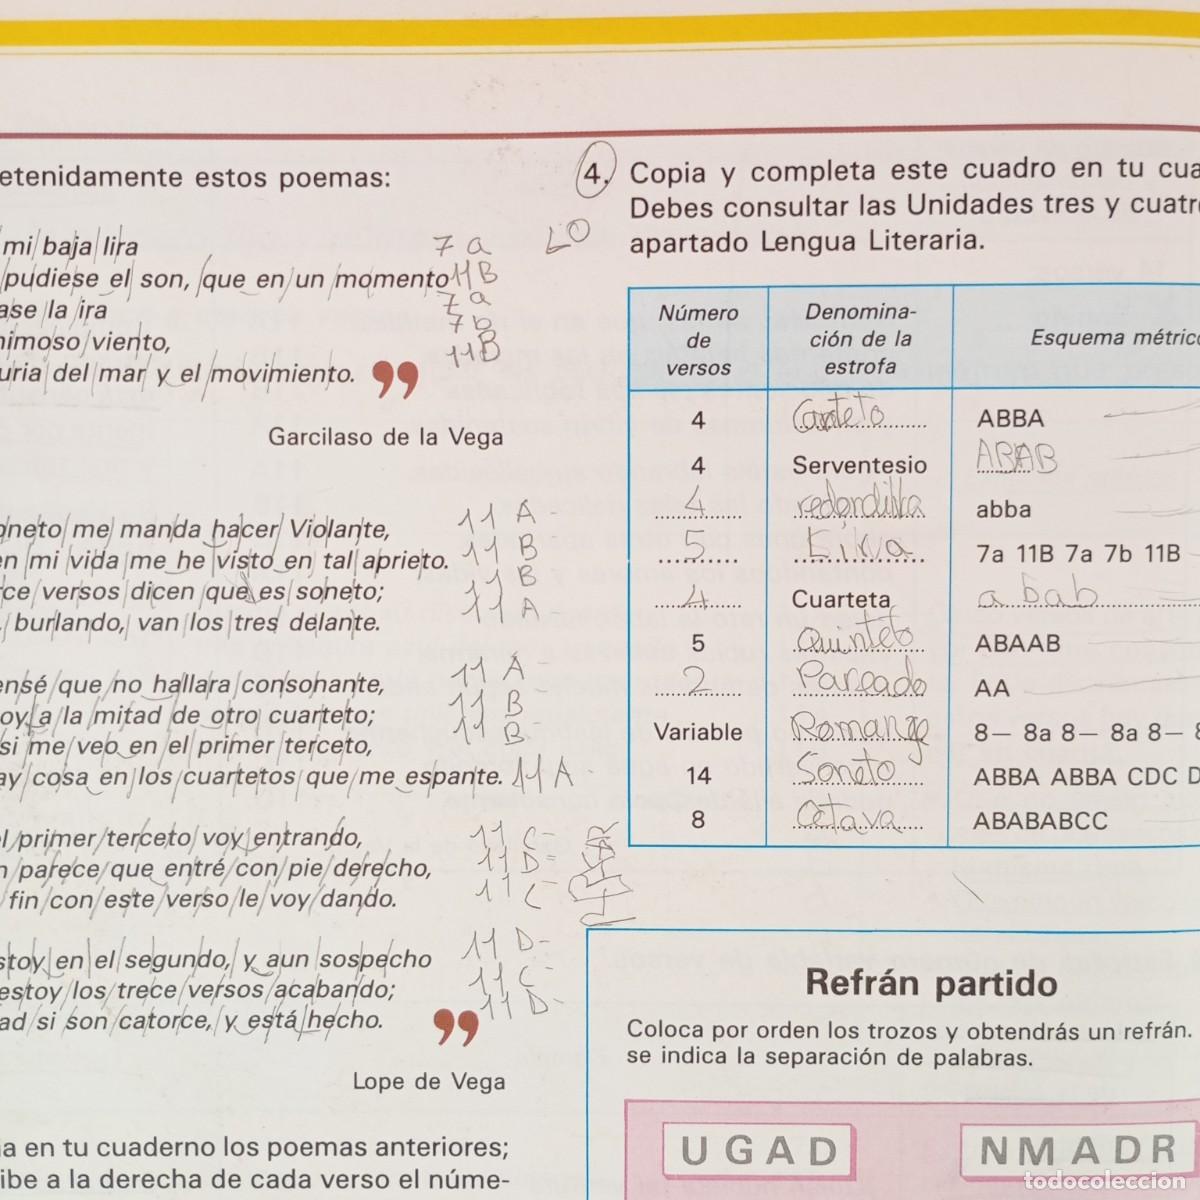 etenidamente estos poemas:
mi baja lira 7 a
pudiese el son, que en un momento 11B
ase la ira 7a
nimoso viento, 7b
uria del mar y el movimiento. 11B
”
Garcilaso de la Vega
oneto me manda hacer Violante, 11 A
en mi vida me he visto en tal aprieto. 11 B
rce versos dicen que es soneto; 11 B
burlando, van los tres delante. 11 A
ensé que no hallara consonante, 11 A-
oy a la mitad de otro cuarteto; 11 B
si me veo en el primer terceto, 11 B-
ay cosa en los cuartetos que me espante. 11A
l primer terceto voy entrando, 11 C-
n parece que entré con pie derecho, 11D=
fin con este verso le voy dando. 11 C
stoy en el segundo, y aun sospecho 11 D-
estoy los trece versos acabando; 11 C-
ad si son catorce, y está hecho. 11 D-
”
Lope de Vega
ia en tu cuaderno los poemas anteriores;
ibe a la derecha de cada verso el núme-
4. Copia y completa este cuadro en tu cua
Debes consultar las Unidades tres y cuatro
apartado Lengua Literaria.
Número de versos
Denomina-
ción de la
estrofa
Esquema métrico
4 Cuarteto ABBA
4 Serventesio ABAB
4 redondilla abba
5 Lira 7a 11B 7a 7b 11B
4 Cuarteta abab
5 Quinteto ABAAB
2 Pareado AA
Variable Romange 8— 8a 8— 8a 8— 8
14 Soneto ABBA ABBA CDC D
8 Octava ABABABCC
Refrán partido
Coloca por orden los trozos y obtendrás un refrán.
se indica la separación de palabras.
UGAD NMADR
todocoleccion